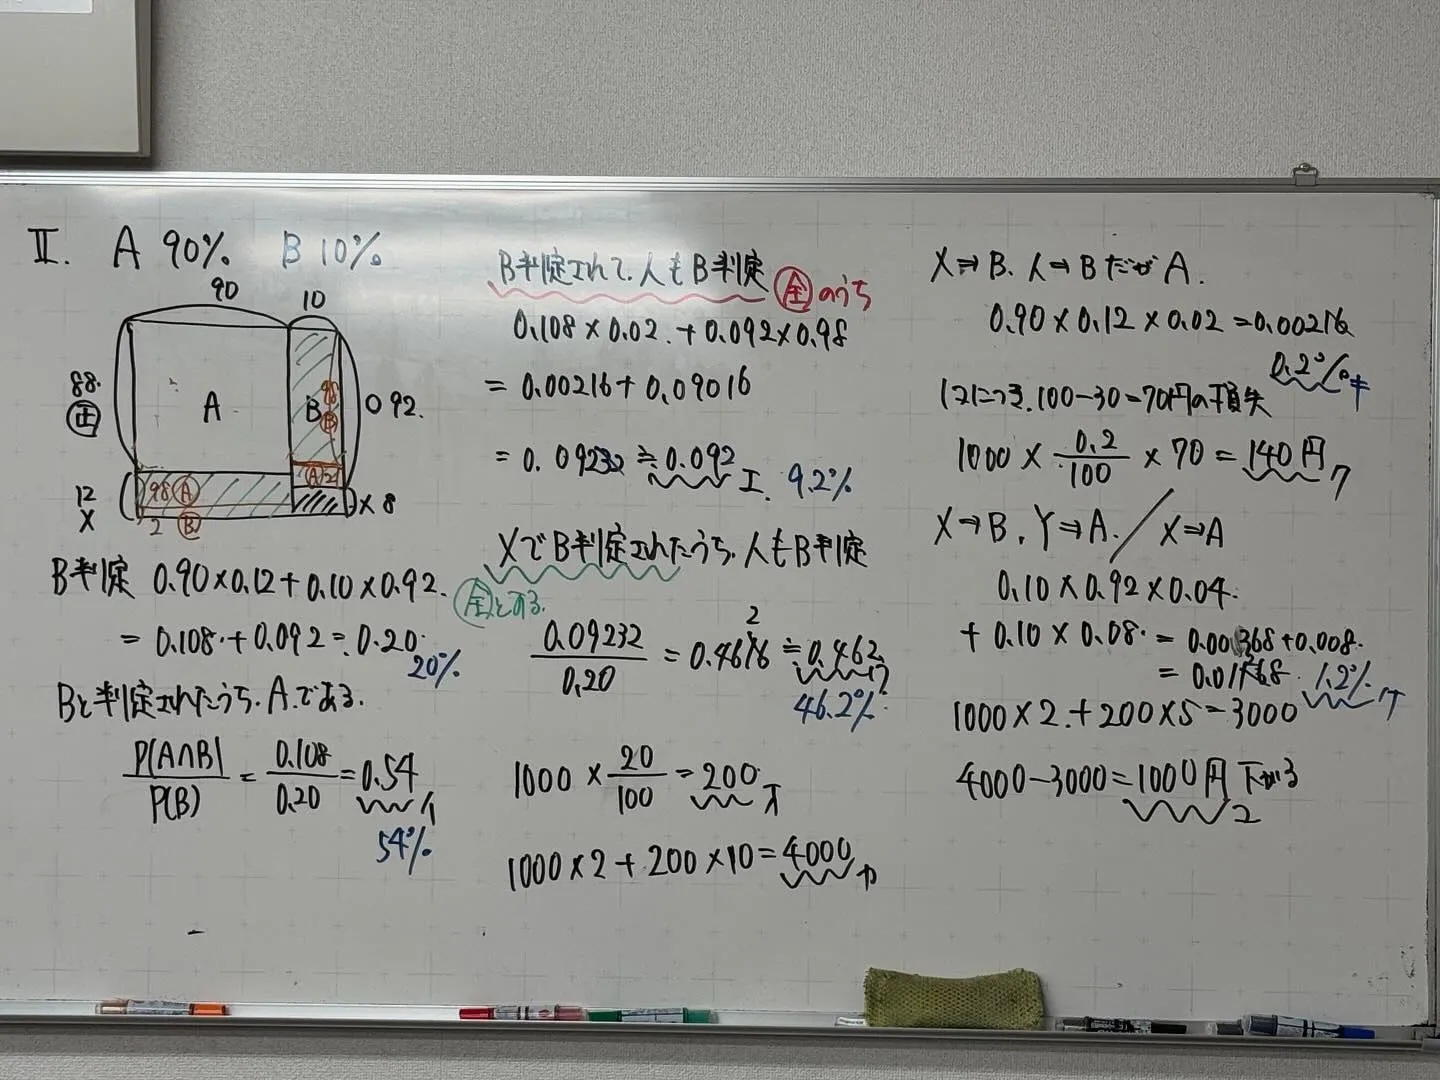 II. A 90% B 10%
90 10
88 正
A
98 B
B
0.92
98 A
A 2
12 ×
2 B
× 8
B判定 0.90×0.12+0.10×0.92
=0.108+0.092=0.20
20%
Bと判定されたうち.Aである.
P(A∩B)/P(B)=0.108/0.20=0.54 イ
54%
B判定されて、人もB判定 全のうち
0.108×0.02+0.092×0.98
=0.00216+0.09016
=0.09232≒0.092 エ 9.2%
XでB判定されたうち.人もB判定
全とする
0.09232/0.20=0.4616≒0.462 ウ
2
46.2%
1000×20/100=200 オ
1000×2+200×10=4000 カ
X⇒B.人⇒BだがA.
0.90×0.12×0.02=0.00216
0.2% キ
1コにつき.100-30=70円の損失
1000×0.2/100×70=140円 ク
X⇒B.Y⇒A./X⇒A
0.10×0.92×0.04
+0.10×0.08=0.00368+0.008
=0.01168 1.2% ケ
1000×2+200×5=3000
4000-3000=1000円下がる
コ